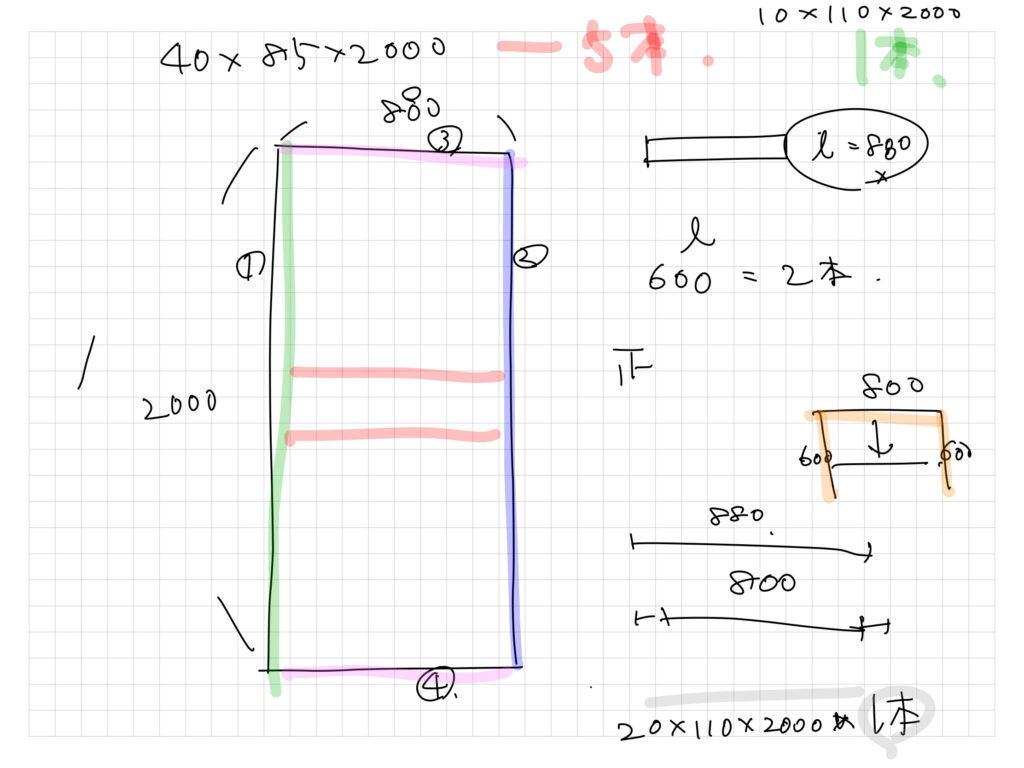 10×110×2000
40×85×2000 ー 5本.
1本.
880
③
l = 880
①
②
l
600 = 2本.
正
2000
800
600 600
880
800
④.
20×110×2000 × 1本